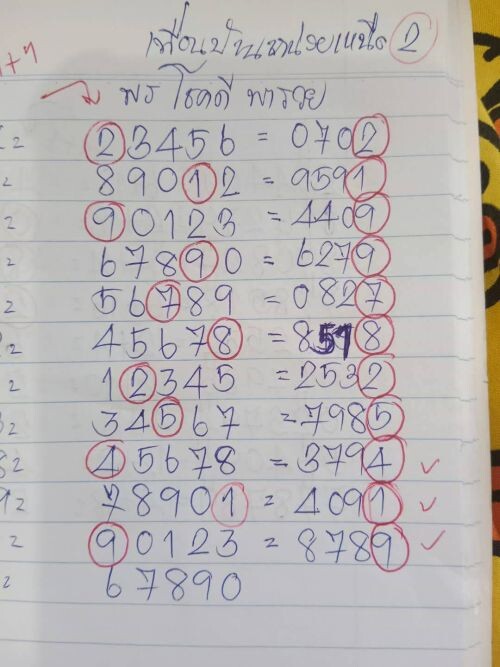 2
พร โชคดี พารวย
23456 = 0702
89012 = 9591
90123 = 4409
67890 = 6279
56789 = 0827
45678 = 8518
12345 = 2532
34567 = 7985
45678 = 3794 ✓
78901 = 4091 ✓
90123 = 8789 ✓
67890